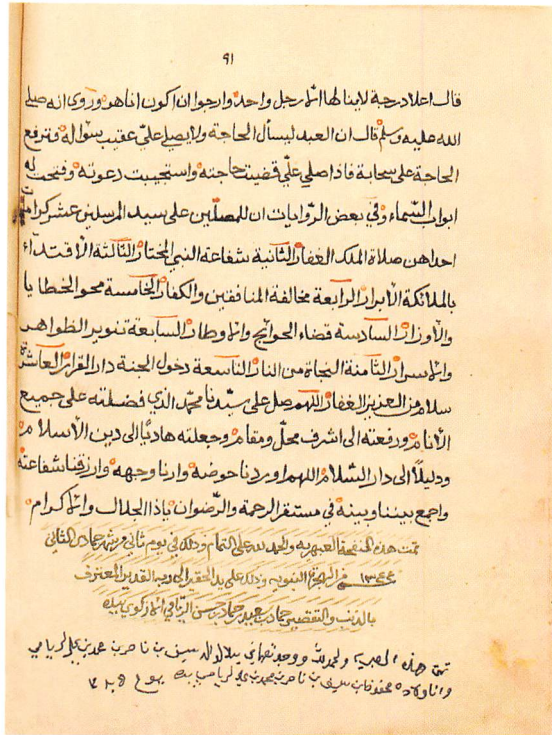 ٩١
قال اعلا درجة لاينالها الا رجل واحد وارجوا ان اكون انا هو وروى انه صلى
الله عليه وسلم قال ان العبد ليسأل الحاجة ولا يصلي علي عقيب سؤاله فترفع
الحاجة على سحابة فاذا صلي علي قضيت حاجته واستجيبت دعوته وفتحت له
ابواب السماء وفي بعض الروايات ان للمصلين على سيد المرسلين عشر كرامات
احداهن صلاة الملك الغفار الثانية شفاعة النبي المختار الثالثة الاقتداء
بالملائكة الابرار الرابعة مخالفة المنافقين والكفار الخامسة محو الخطايا
والاوزار السادسة قضاء الحوائج والاوطار السابعة تنوير الظواهر
والاسرار الثامنة النجاة من النار التاسعة دخول الجنة دار القرار العاشرة
سلام من العزيز الغفار اللهم صل على سيدنا محمد الذي فضلته على جميع
الانام ورفعته الى اشرف محل ومقام وجعلته هاديًا الى دين الاسلام
ودليلًا الى دار السلام اللهم اوردنا حوضه وارنا وجهه وارزقنا شفاعته
واجمع بيننا وبينه في مستقر الرحمة والرضوان ياذا الجلال والاكرام
تمت هذه النفحة العنبرية والحمد لله على التمام وذلك في يوم ثاني من شهر جمادى الثاني
من الهجرة النبوية وذلك على يد الحقير الى ربه القدير المعترف
بالذنب والتقصير سعيد بن حسن بيده
تمت هذه ولحمد لله سيف بن ناصر بن
سيف بن ناصر بن محمد بن بيده